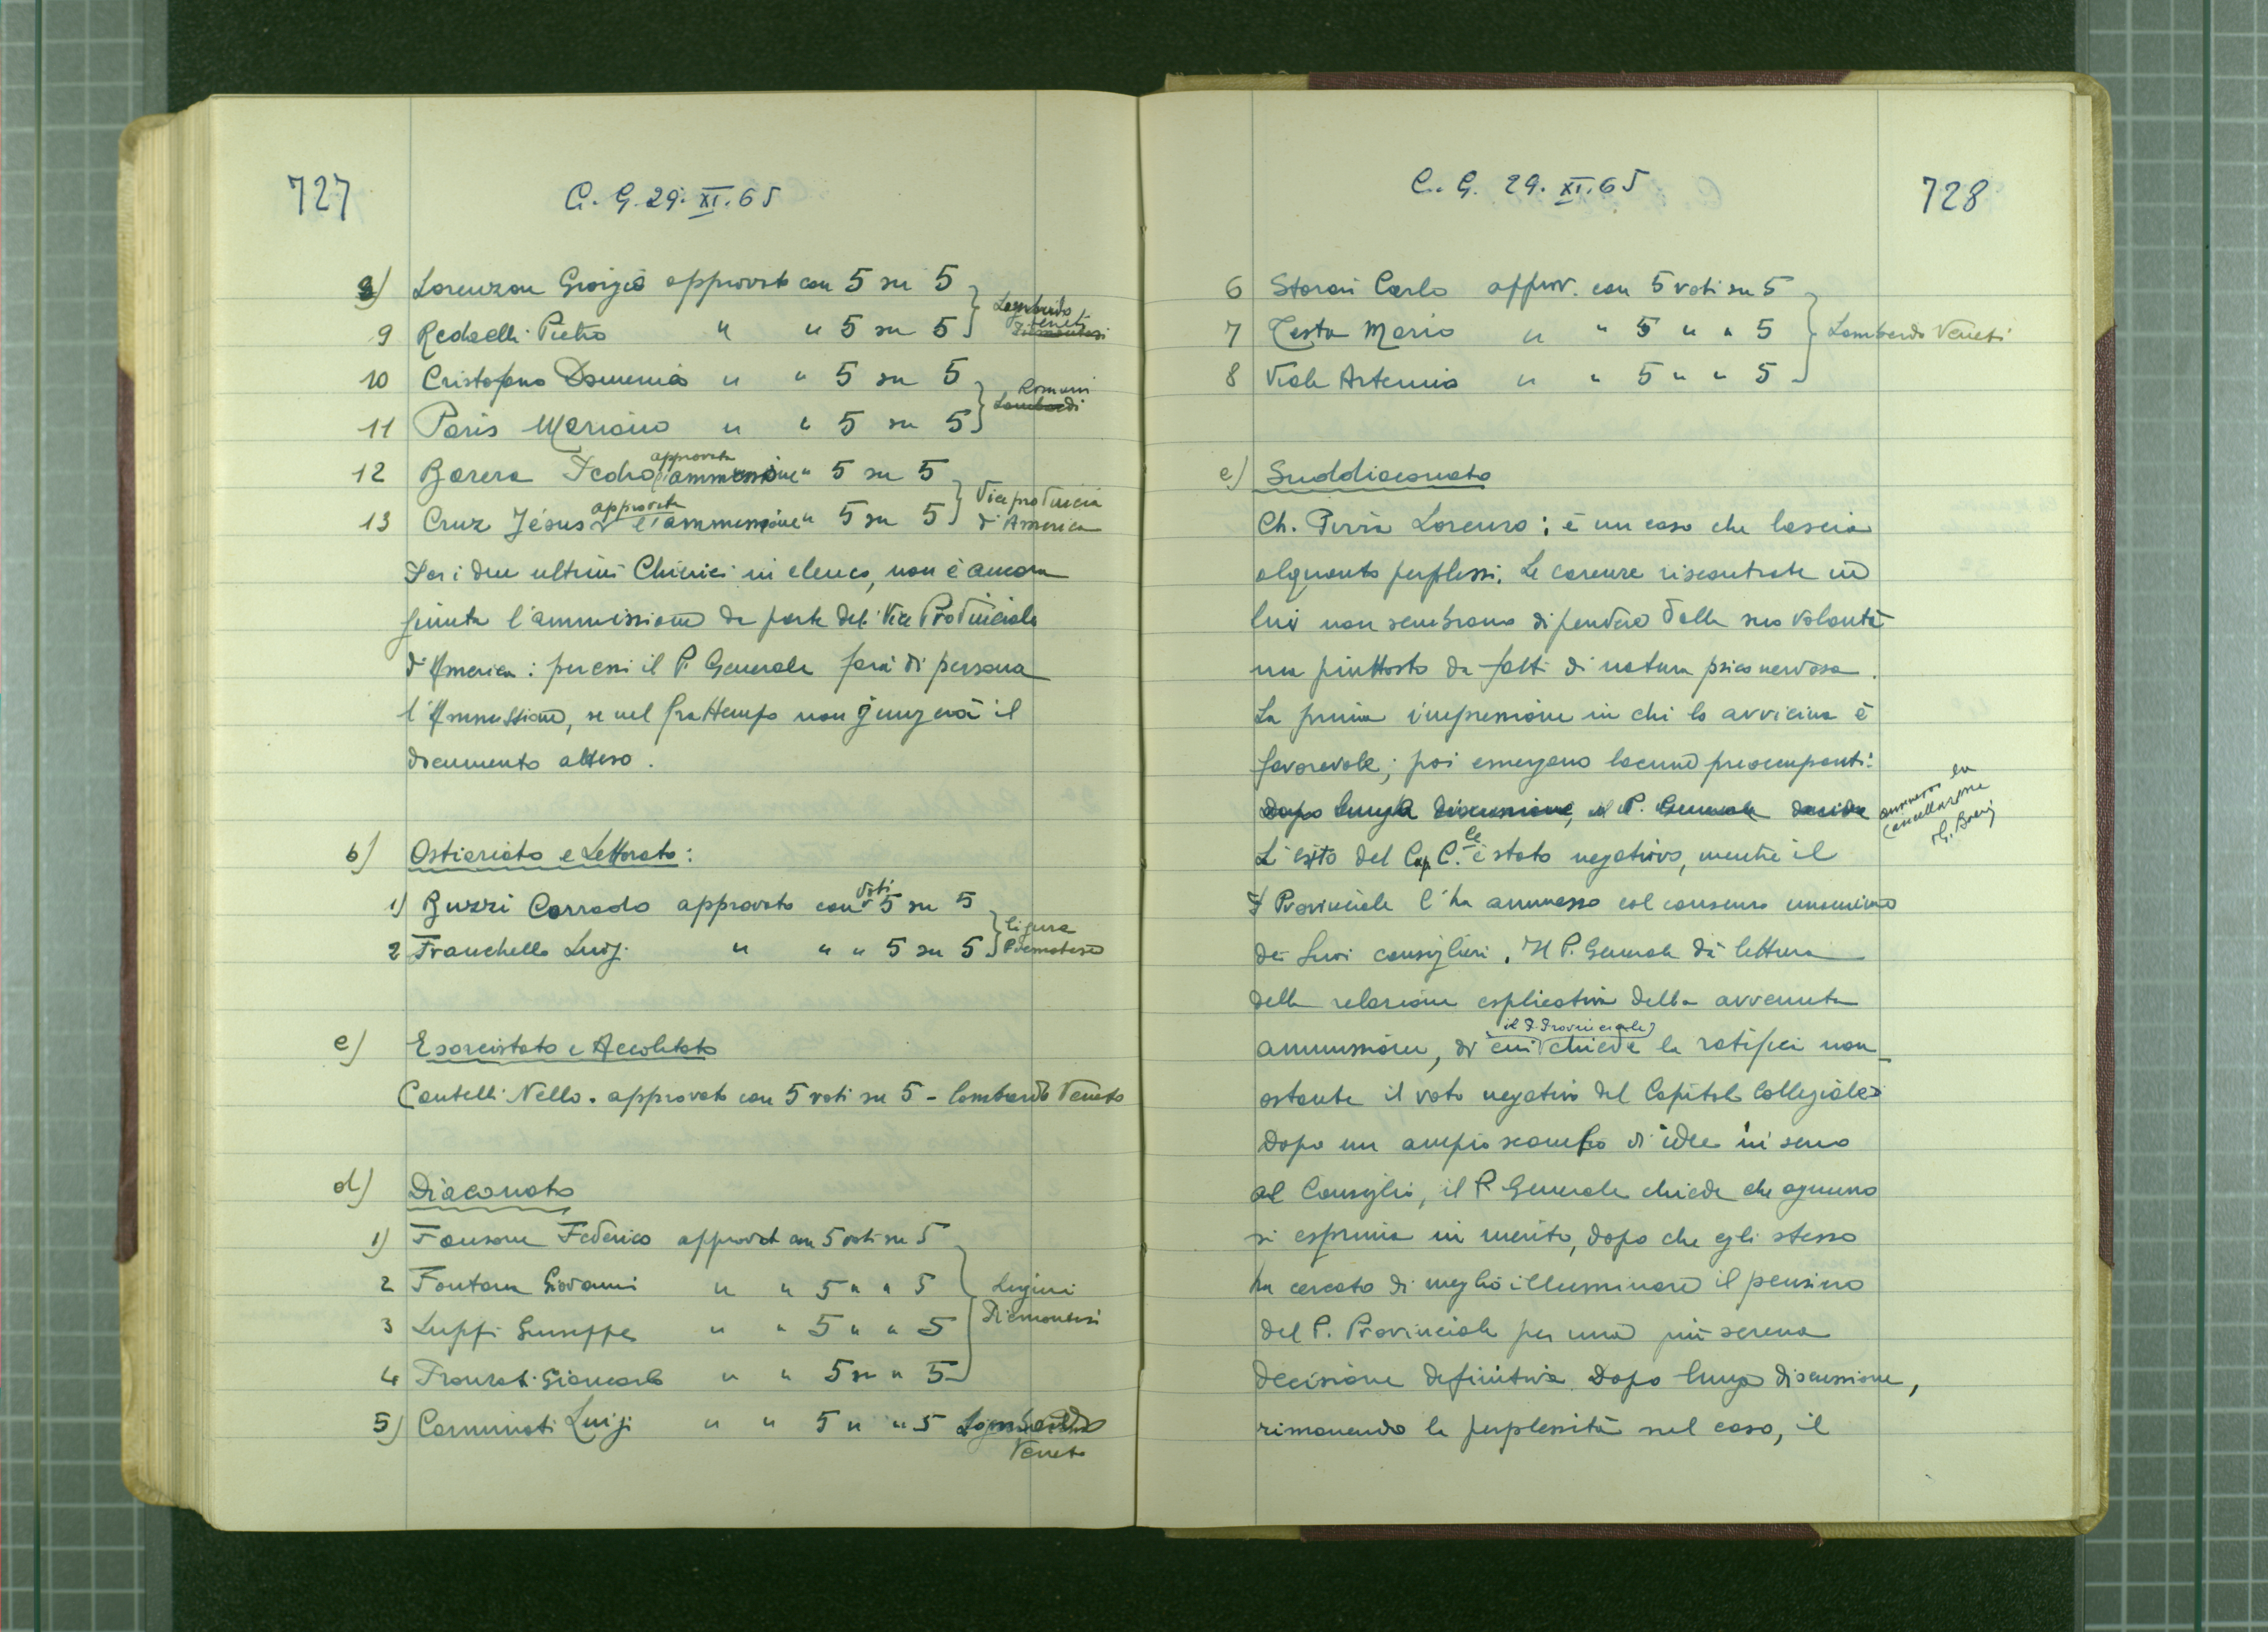 727
C. G. 29. XI. 65
8) Lorenzon Giorgio approvato con 5 su 5
Lombardo
Veneti
9 Redaelli Pietro " " 5 su 5
10 Cristofano Domenico " " 5 su 5
Romani
Lombardi
11 Paris Mariano " " 5 su 5
approvata
12 Barera Pedro l'ammissione " 5 su 5
approvata
13 Cruz Jésus l'ammissione " 5 su 5
Viceprovincia
d'America
Per i due ultimi Chierici in elenco, non è ancora
giunta l'ammissione da parte del Vice Provinciale
d'America : per essi il P. Generale farà di persona
l'Ammissione, se nel frattempo non giungerà il
documento atteso.
b) Ostiariato e Lettorato:
voti
1) Buzzi Corrado approvato con 5 su 5
2 Franchello Luigi " " " 5 su 5
Ligure
Piemontese
c) Esorcistato e Accolitato
Cantelli Nello. approvato con 5 voti su 5 - Lombardo Veneto
d) Diaconato
1) Fausone Federico approvat con 5 voti su 5
2 Fontana Giovanni " " 5 " " 5
Liguri
Piemontesi
3 Luppi Giuseppe " " 5 " " 5
4 Giancarlo " " 5 su " 5
5) Carminati Luigi " " 5 " " 5 Lombardo
Veneto
C. G. 29. XI. 65
728
6 Carlo approv. con 5 voti su 5
7 Testa Mario " " 5 " " 5
Lombardo Veneti
8 Viale Artemio " " 5 " " 5
e) Suddiaconato
Ch. Lorenzo : è un caso che lascia
alquanto perplessi. Le carenze riscontrate in
lui non sembrano dipendere dalla sua volontà
ma piuttosto da fatti di natura psico nervosa.
La prima impressione in chi lo avvicina è
favorevole; poi emergono lacune preoccupanti.
Dopo lunga discussione, il P. Generale decide
la
cancellazione
le
L'esito del Cap. C. è stato negativo, mentre il
P Provinciale l'ha ammesso col consenso unanime
dei suoi consiglieri. Il P. Generale dà lettura
della relazione esplicativa della avvenuta
il P. Provinciale
ammissione, di cui chiede la ratifica non-
ostante il voto negativo del Capitolo Collegiale.
Dopo un ampio scambio di idee in seno
al Consiglio, il P. Generale chiede che ognuno
si esprima in merito, dopo che egli stesso
ha cercato di meglio illuminare il pensiero
del P. Provinciale per una più serena
decisione definitiva. Dopo lunga discussione,
rimanendo la perplessità sul caso, il